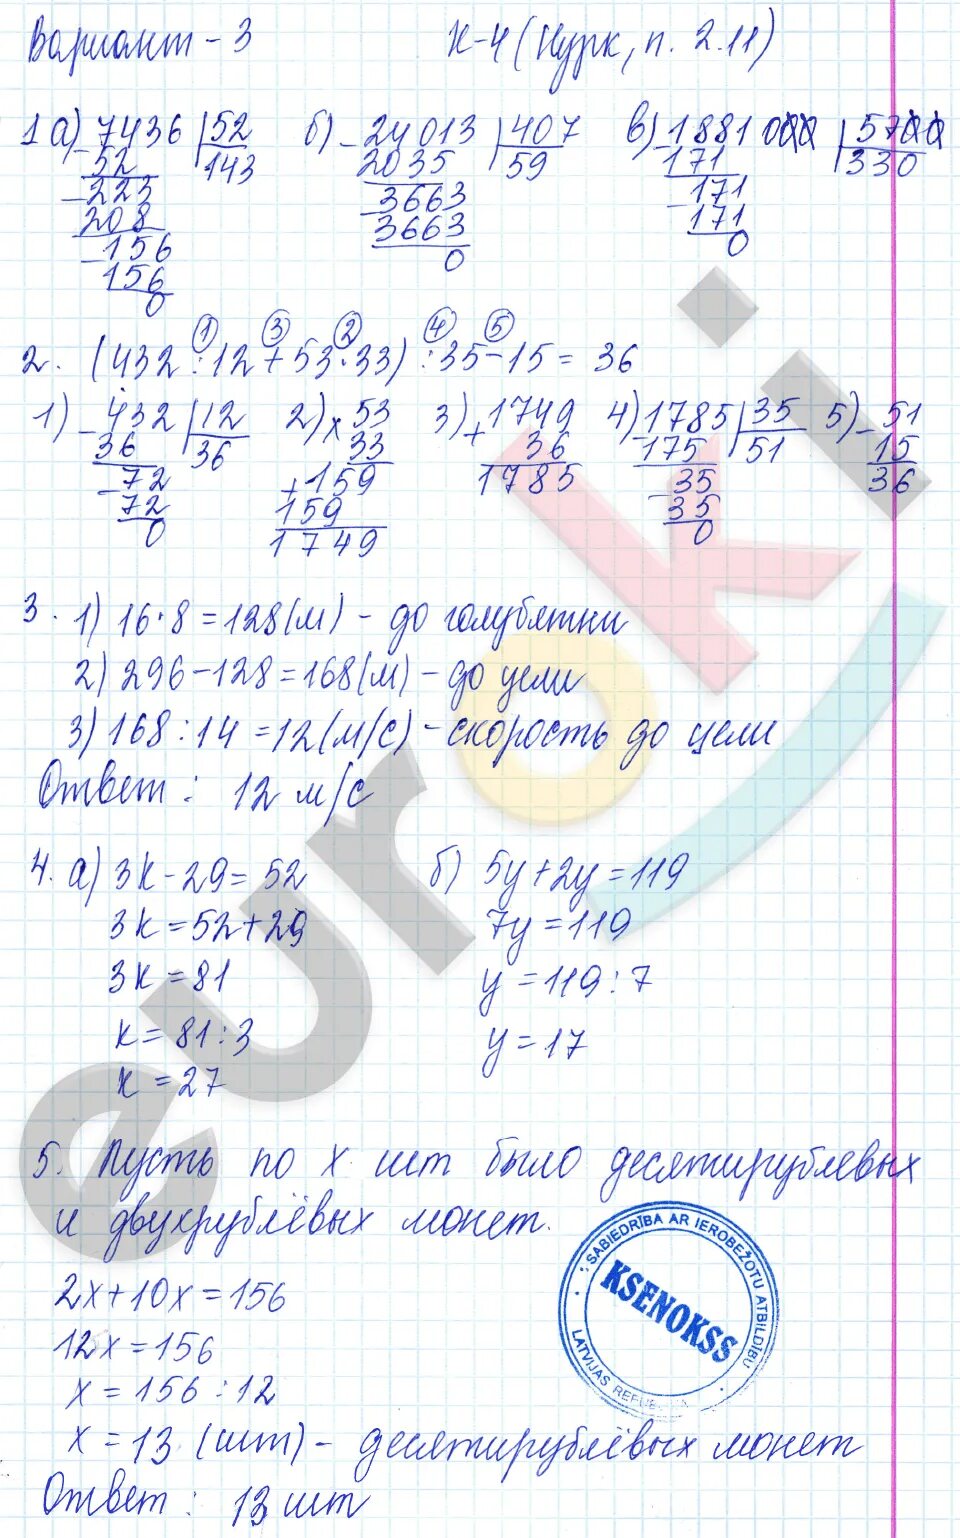 Вариант – 3 К-4 (Нурк, п. 2.11)
1 а) 7436 | 52 б) 24013 | 407 в) 1881000 | 5700
– 52 143 – 2035 59 – 171 330
– 223 – 3663 – 171
208 3663 171
– 156 0 0
156
0
2. (432 : 12 + 53 · 33) : 35 – 15 = 36
1 3 2 4 5
1) – 432 | 12 2) × 53 3) + 1749 4) – 1785 | 35 5) – 51
36 36 33 36 175 51 15
– 72 + 159 1785 – 35 36
72 159 35
0 1749 0
3. 1) 16 · 8 = 128 (м) – до голубятни
2) 296 – 128 = 168 (м) – до цели
3) 168 : 14 = 12 (м/с) – скорость до цели
Ответ : 12 м/с
4. а) 3k – 29 = 52 б) 5y + 2y = 119
3k = 52 + 29 7y = 119
3k = 81 y = 119 : 7
k = 81 : 3 y = 17
k = 27
5. Пусть по x шт было десятирублевых
и двухрублёвых монет.
2x + 10x = 156
12x = 156
x = 156 : 12
x = 13 (шт) – десятирублёвых монет
Ответ : 13 шт
SABIEDRĪBA AR IEROBEŽOTU ATBILDĪBU
KSENOKSS
LATVIJAS REPUBLIKA
euroki